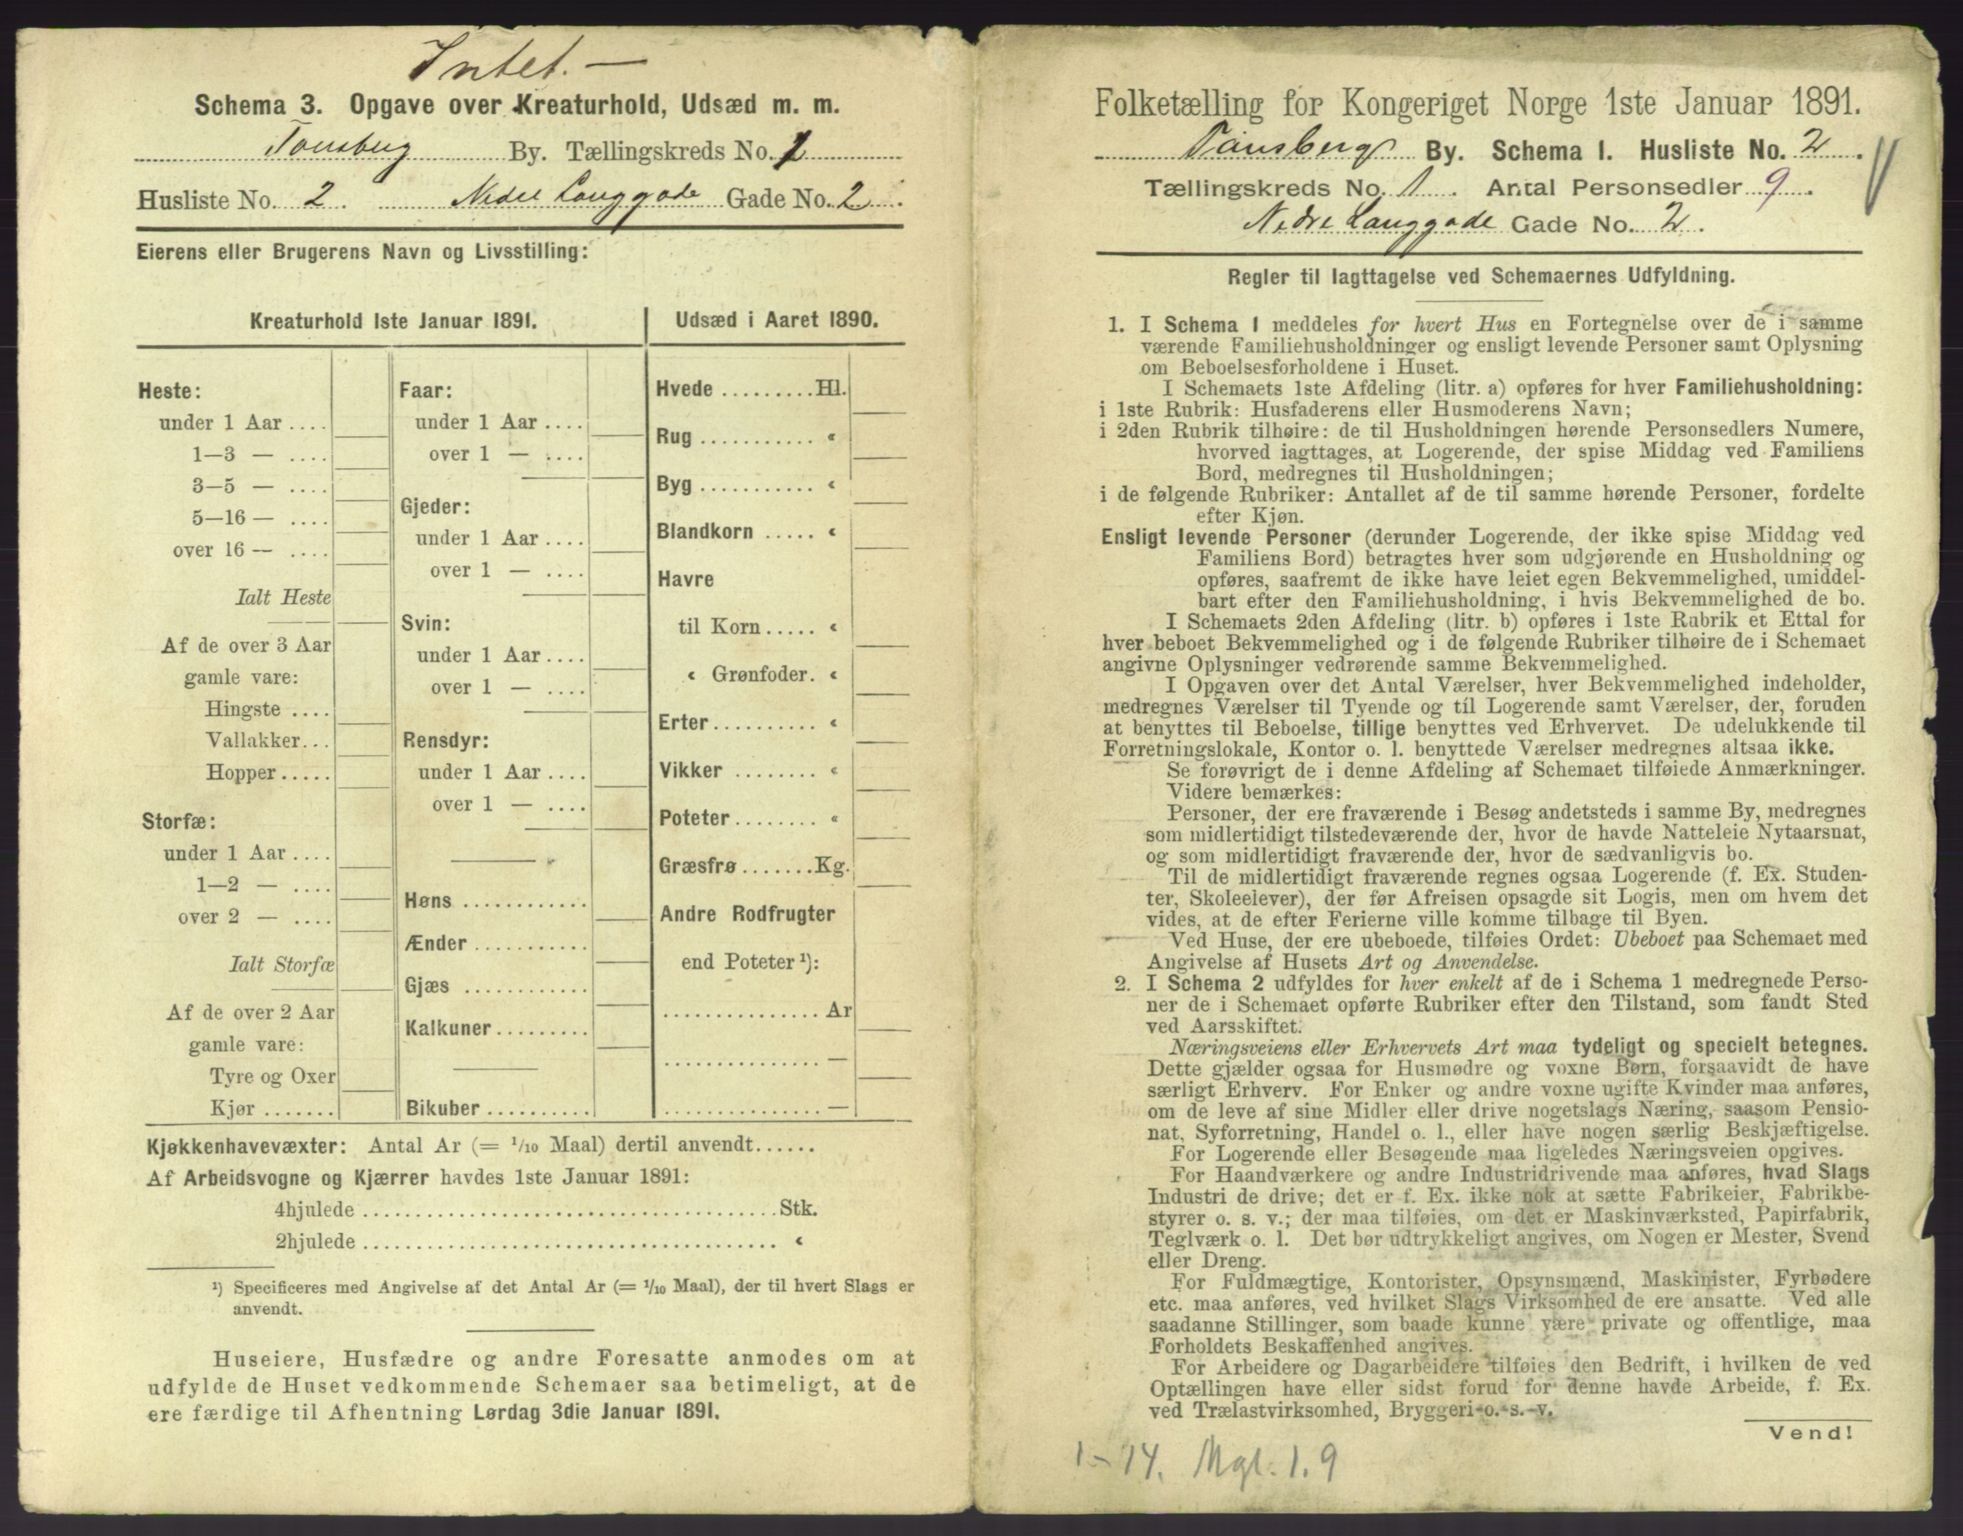 Intet. —
Schema 3. Opgave over Kreaturhold, Udsæd m. m.
Tønsberg By. Tællingskreds No. 1
Husliste No. 2. Nedre Langgade Gade No. 2.
Eierens eller Brugerens Navn og Livsstilling:
Kreaturhold 1ste Januar 1891.
Heste:
under 1 Aar ....
1—3 — ....
3—5 — ....
5—16 — ....
over 16 — ....
Ialt Heste
Af de over 3 Aar
gamle vare:
Hingste ....
Vallakker...
Hopper.....
Storfæ:
under 1 Aar ....
1—2 — ....
over 2 — ....
Ialt Storfæ
Af de over 2 Aar
gamle vare:
Tyre og Oxer
Kjør .......
Faar:
under 1 Aar ....
over 1 — ....
Gjeder:
under 1 Aar ....
over 1 — ....
Svin:
under 1 Aar ....
over 1 — ....
Rensdyr:
under 1 Aar ....
over 1 — ....
Høns ............
Ænder ...........
Gjæs ............
Kalkuner .........
Bikuber ..........
Udsæd i Aaret 1890.
Hvede .........Hl.
Rug ........... «
Byg ........... «
Blandkorn ..... «
Havre
til Korn ..... «
« Grønfoder. «
Erter .......... «
Vikker ........ «
Poteter ........ «
Græsfrø .......Kg.
Andre Rodfrugter
end Poteter ¹):
...............Ar
............... —
............... —
Kjøkkenhavevæxter: Antal Ar (= 1/10 Maal) dertil anvendt......
Af Arbeidsvogne og Kjærrer havdes 1ste Januar 1891:
4hjulede ........................................Stk.
2hjulede ........................................ «
¹) Specificeres med Angivelse af det Antal Ar (= 1/10 Maal), der til hvert Slags er
anvendt.
Huseiere, Husfædre og andre Foresatte anmodes om at
udfylde de Huset vedkommende Schemaer saa betimeligt, at de
ere færdige til Afhentning Lørdag 3die Januar 1891.
Folketælling for Kongeriget Norge 1ste Januar 1891.
Tønsberg By. Schema I. Husliste No. 2.
Tællingskreds No. 1. Antal Personsedler 9.
Nedre Langgade Gade No. 2.
Regler til Iagttagelse ved Schemaernes Udfyldning.
1. I Schema 1 meddeles for hvert Hus en Fortegnelse over de i samme
værende Familiehusholdninger og ensligt levende Personer samt Oplysning
om Beboelsesforholdene i Huset.
I Schemaets 1ste Afdeling (litr. a) opføres for hver Familiehusholdning:
i 1ste Rubrik: Husfaderens eller Husmoderens Navn;
i 2den Rubrik tilhøire: de til Husholdningen hørende Personsedlers Numere,
hvorved iagttages, at Logerende, der spise Middag ved Familiens
Bord, medregnes til Husholdningen;
i de følgende Rubriker: Antallet af de til samme hørende Personer, fordelte
efter Kjøn.
Ensligt levende Personer (derunder Logerende, der ikke spise Middag ved
Familiens Bord) betragtes hver som udgjørende en Husholdning og
opføres, saafremt de ikke have leiet egen Bekvemmelighed, umiddel-
bart efter den Familiehusholdning, i hvis Bekvemmelighed de bo.
I Schemaets 2den Afdeling (litr. b) opføres i 1ste Rubrik et Ettal for
hver beboet Bekvemmelighed og i de følgende Rubriker tilhøire de i Schemaet
angivne Oplysninger vedrørende samme Bekvemmelighed.
I Opgaven over det Antal Værelser, hver Bekvemmelighed indeholder,
medregnes Værelser til Tyende og til Logerende samt Værelser, der, foruden
at benyttes til Beboelse, tillige benyttes ved Erhvervet. De udelukkende til
Forretningslokale, Kontor o. l. benyttede Værelser medregnes altsaa ikke.
Se forøvrigt de i denne Afdeling af Schemaet tilføiede Anmærkninger.
Videre bemærkes:
Personer, der ere fraværende i Besøg andetsteds i samme By, medregnes
som midlertidigt tilstedeværende der, hvor de havde Natteleie Nytaarsnat,
og som midlertidigt fraværende der, hvor de sædvanligvis bo.
Til de midlertidigt fraværende regnes ogsaa Logerende (f. Ex. Studen-
ter, Skoleelever), der før Afreisen opsagde sit Logis, men om hvem det
vides, at de efter Ferierne ville komme tilbage til Byen.
Ved Huse, der ere ubeboede, tilføies Ordet: Ubeboet paa Schemaet med
Angivelse af Husets Art og Anvendelse.
2. I Schema 2 udfyldes for hver enkelt af de i Schema 1 medregnede Perso-
ner de i Schemaet opførte Rubriker efter den Tilstand, som fandt Sted
ved Aarsskiftet.
Næringsveiens eller Erhvervets Art maa tydeligt og specielt betegnes.
Dette gjælder ogsaa for Husmødre og voxne Børn, forsaavidt de have
særligt Erhverv. For Enker og andre voxne ugifte Kvinder maa anføres,
om de leve af sine Midler eller drive nogetslags Næring, saasom Pensio-
nat, Syforretning, Handel o. l., eller have nogen særlig Beskjæftigelse.
For Logerende eller Besøgende maa ligeledes Næringsveien opgives.
For Haandværkere og andre Industridrivende maa anføres, hvad Slags
Industri de drive; det er f. Ex. ikke nok at sætte Fabrikeier, Fabrikbe-
styrer o. s. v.; der maa tilføies, om det er Maskinværksted, Papirfabrik,
Teglværk o. l. Det bør udtrykkeligt angives, om Nogen er Mester, Svend
eller Dreng.
For Fuldmægtige, Kontorister, Opsynsmænd, Maskinister, Fyrbødere
etc. maa anføres, ved hvilket Slags Virksomhed de ere ansatte. Ved alle
saadanne Stillinger, som baade kunne være private og offentlige, maa
Forholdets Beskaffenhed angives.
For Arbeidere og Dagarbeidere tilføies den Bedrift, i hvilken de ved
Optællingen have eller sidst forud for denne havde Arbeide, f. Ex.
ved Trælastvirksomhed, Bryggeri o. s. v.
Vend!
1-14. Mgl. 1.9